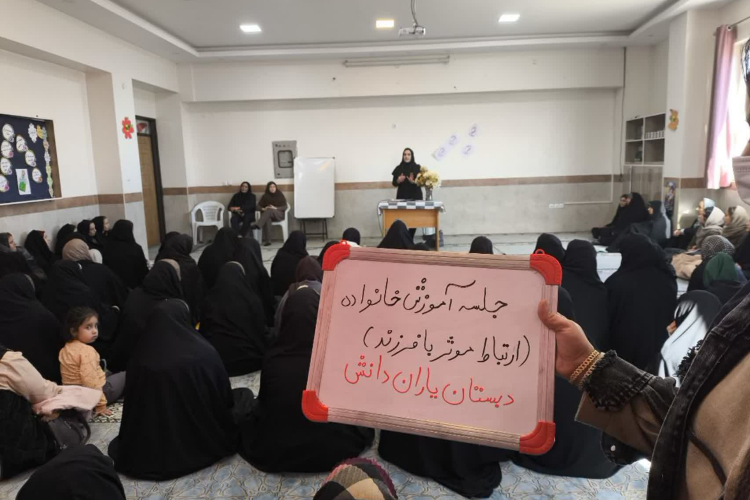 جلسه آموزش خانواده
(ارتباط موثر با فرزند)
دبستان یاران دانش